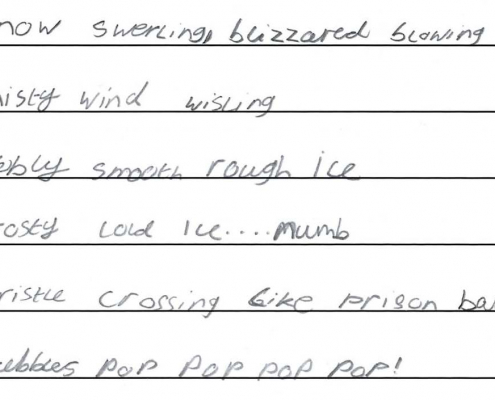 now swerling, blizzared blowing
isty wind wisling
bbly smooth rough ice
rosty cold ice....mumb
ristle crossing like prison ba
ubbles pop pop pop pop!